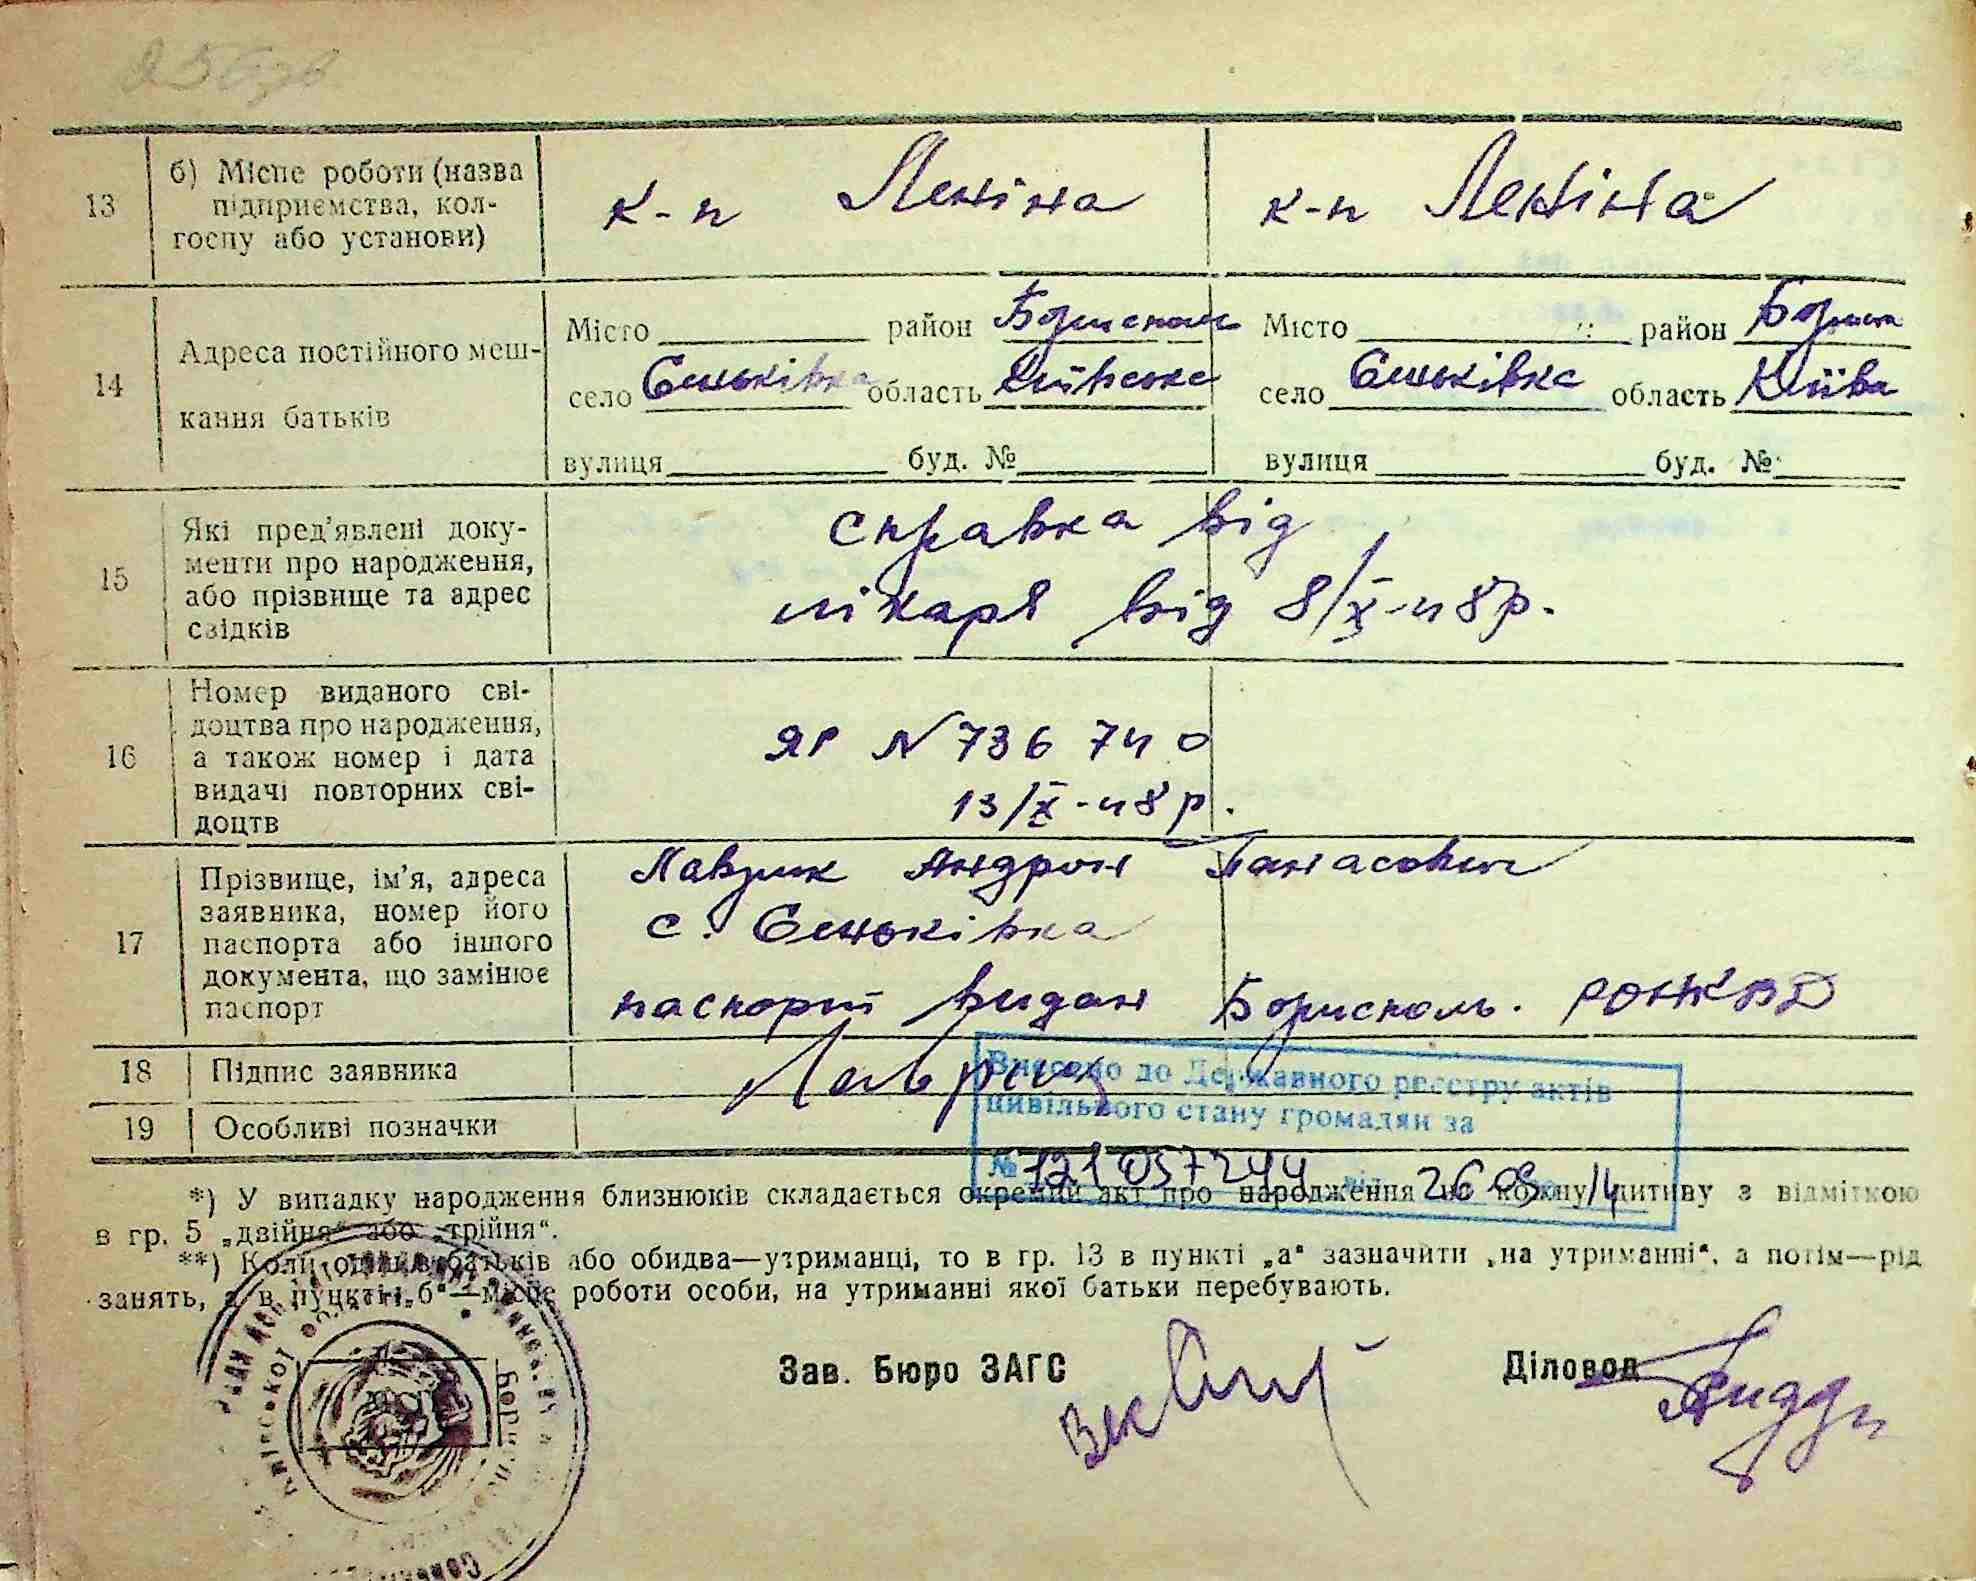 13
б) Місце роботи (назва
підприємства, кол-
госпу або установи)
к-п Леніна
к-п Леніна
14
Адреса постійного меш-
кання батьків
Місто район Бориспол
село Сеньківка область Київське
вулиця буд. №
Місто район Борисп
село Сеньківка область Київа
вулиця буд. №
15
Які пред'явлені доку-
менти про народження,
або прізвище та адрес
свідків
Справка від
лікаря від 8/X-48р.
16
Номер виданого сві-
доцтва про народження,
а також номер і дата
видачі повторних сві-
доцтв
ЯР N 736 740
13/X-48р.
17
Прізвище, ім'я, адреса
заявника, номер його
паспорта або іншого
документа, що замінює
паспорт
Лаврик Андрон Панасович
с. Сеньківка
паспорт видан Бориспол. РОНКВД
18
Підпис заявника
Лаврик
19
Особливі позначки
Внесено до Державного реєстру актів
цивільного стану громадян за
№ 121057244 від 26 05 14
*) У випадку народження близнюків складається окремий акт про народження на кожну дитину з відміткою
в гр. 5 „двійня“ або „трійня“.
**) Коли один з батьків або обидва—утриманці, то в гр. 13 в пункті „а“ зазначити „на утриманні“, а потім—рід
занять, а в пункті „б“—місце роботи особи, на утриманні якої батьки перебувають.
Зав. Бюро ЗАГС
Діловод